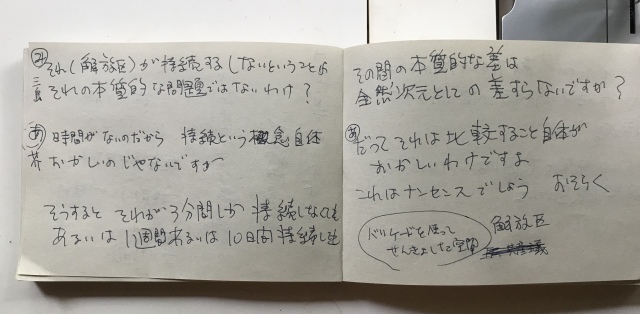 それ(解放区)が持続するしないということは
三島 それの本質的な問題ではないわけ?
あ 時間がないのだから 持続という概念自体
芥 おかしいのじゃないですか
そうすると それが3分間しか持続しなくても
あるいは 1週間あるいは 10日間 持続しても
その間の本質的な差は
全然次元としての差すらないですか?
あ だって それは比較すること自体が
おかしいわけですよ
これはナンセンスでしょう おそらく
バリケードを使って
せんきょした空間
解放区